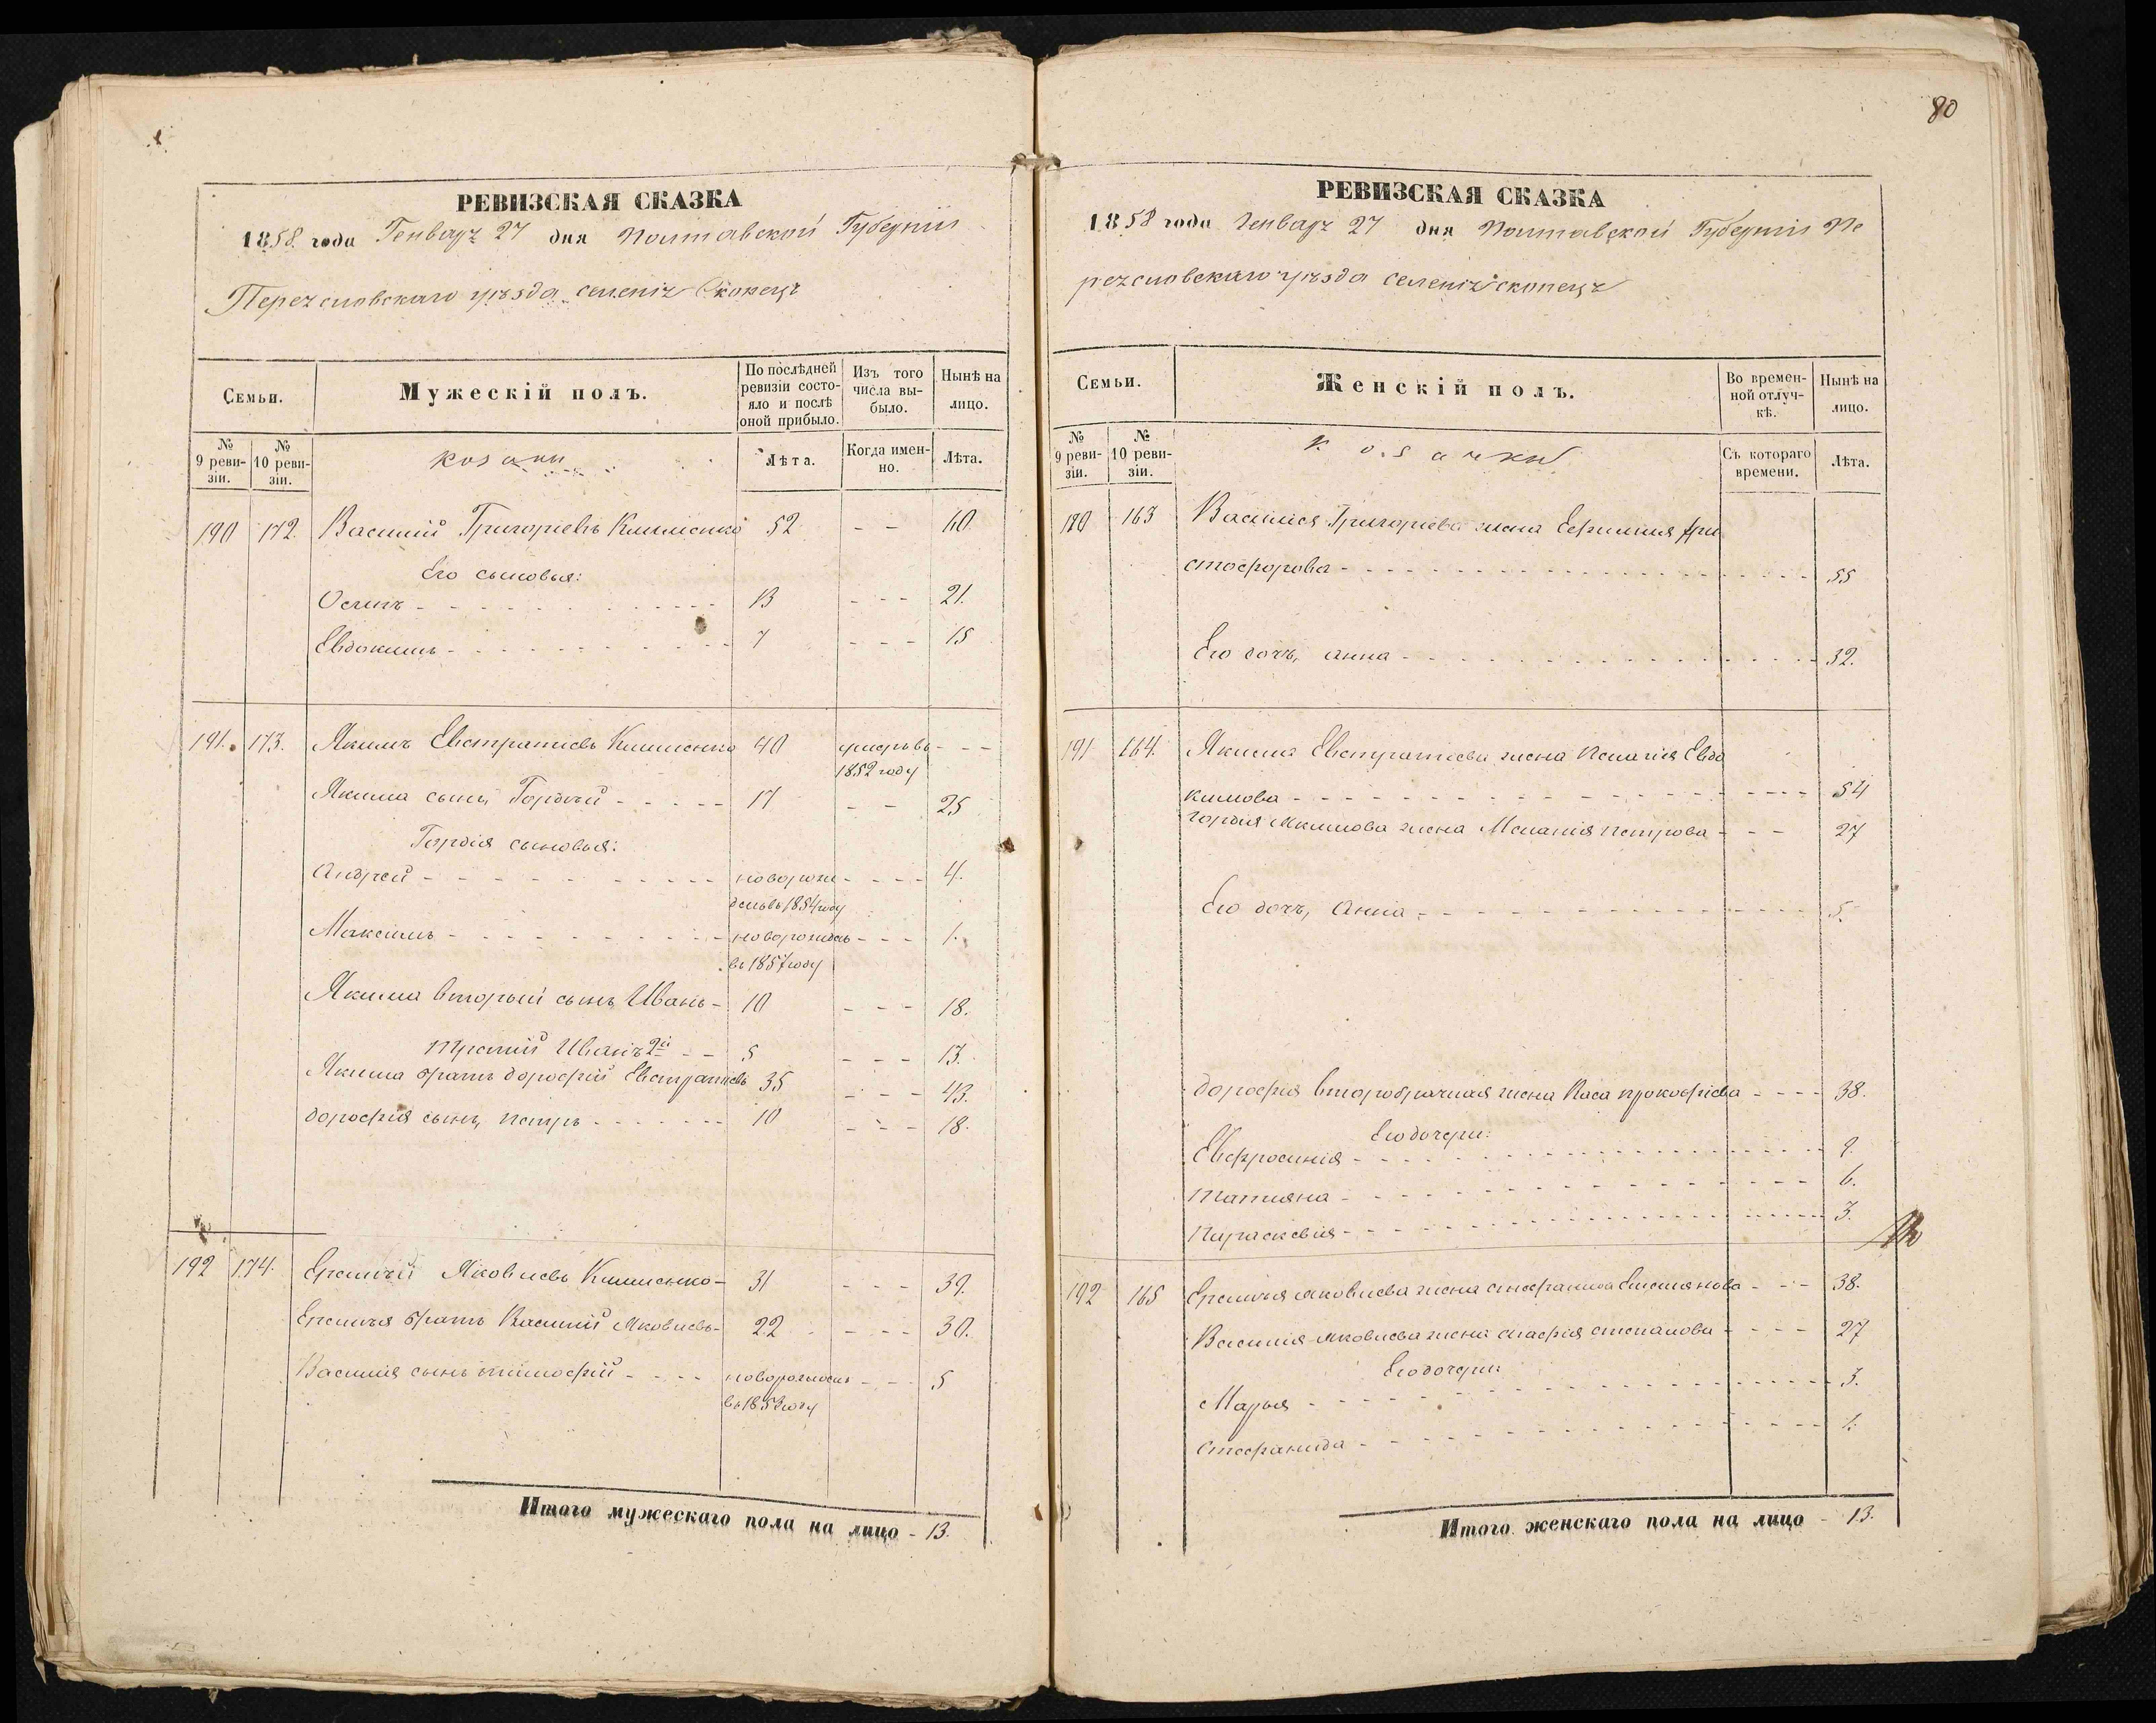 РЕВИЗСКАЯ СКАЗКА
1858 года Генваря 27 дня Полтавской Губерніи
Переясловскаго уѣзда селенія Скопецъ
Семьи.
Мужескій полъ.
По послѣдней ревизіи состояло и послѣ оной прибыло.
Изъ того числа выбыло.
Нынѣ на лицо.
№ 9 ревизіи.
№ 10 ревизіи.
козаки
Лѣта.
Когда именно.
Лѣта.
190 172. Василий Григориевъ Клименко 52 - - 60.
Его сыновья:
Осипъ - - - 13 - - - 21.
Евдокимъ - - - 7 - - - 15
191. 173. Якимъ Евстратиевъ Клименко 40 умеръ въ - - -
1852 году
Якима сынъ Гордѣй - - - 17 - - 25
Гордія сыновья:
Андрей - - - новорож - - - 4.
денъ въ 1854 году
Максимъ - - - новорожденъ - - - 1.
въ 1857 году
Якима вторый сынъ Иванъ - 10 - - - 18.
третий Иванъ 2й - - 5 - - - 13.
Якима братъ дорофій Евстратиевъ 35 - - - 43.
дорофія сынъ, петръ - - - 10 - - - 18.
192 174. Еремѣй Яковлевъ Клименко - 31 - - - 39.
Еремѣя братъ Василий Яковлевъ - 22 - - - 30.
Василия сынъ тимофій - - - новорожденъ - - - 5
въ 1853 году
Итого мужескаго пола на лицо - 13.
80
РЕВИЗСКАЯ СКАЗКА
1858 года Генваря 27 дня Полтавской Губерніи Пе
реясловскаго уѣзда селенія скопецъ
Семьи.
Женскій полъ.
Во временной отлучкѣ.
Нынѣ на лицо.
№ 9 ревизіи.
№ 10 ревизіи.
козачки
Съ котораго времени.
Лѣта.
190 163 Василия Григориева жена Ефимия Хри
стофорова - - - 55
Его дочь, анна - - - 32.
191 164. Якима Евстратиева жена Пелагія Евдо
кимова - - - 54
гордия Якимова жена Меланія петрова - - - 27
Его дочь, Анна - - - 5.
дорофія второбрачная жена Васа прокофиева - - - 38.
Его дочери:
Евфросинія - - - 9.
татияна - - - 6.
параскевия - - - 3.
192 165 Еремѣя яковлева жена стефанида Емелянова - - - 38.
Василия яковлева жена агафія степанова - - - 27
Его дочери:
Марья - - - 3.
стефанида - - - 1.
Итого женскаго пола на лицо - 13.